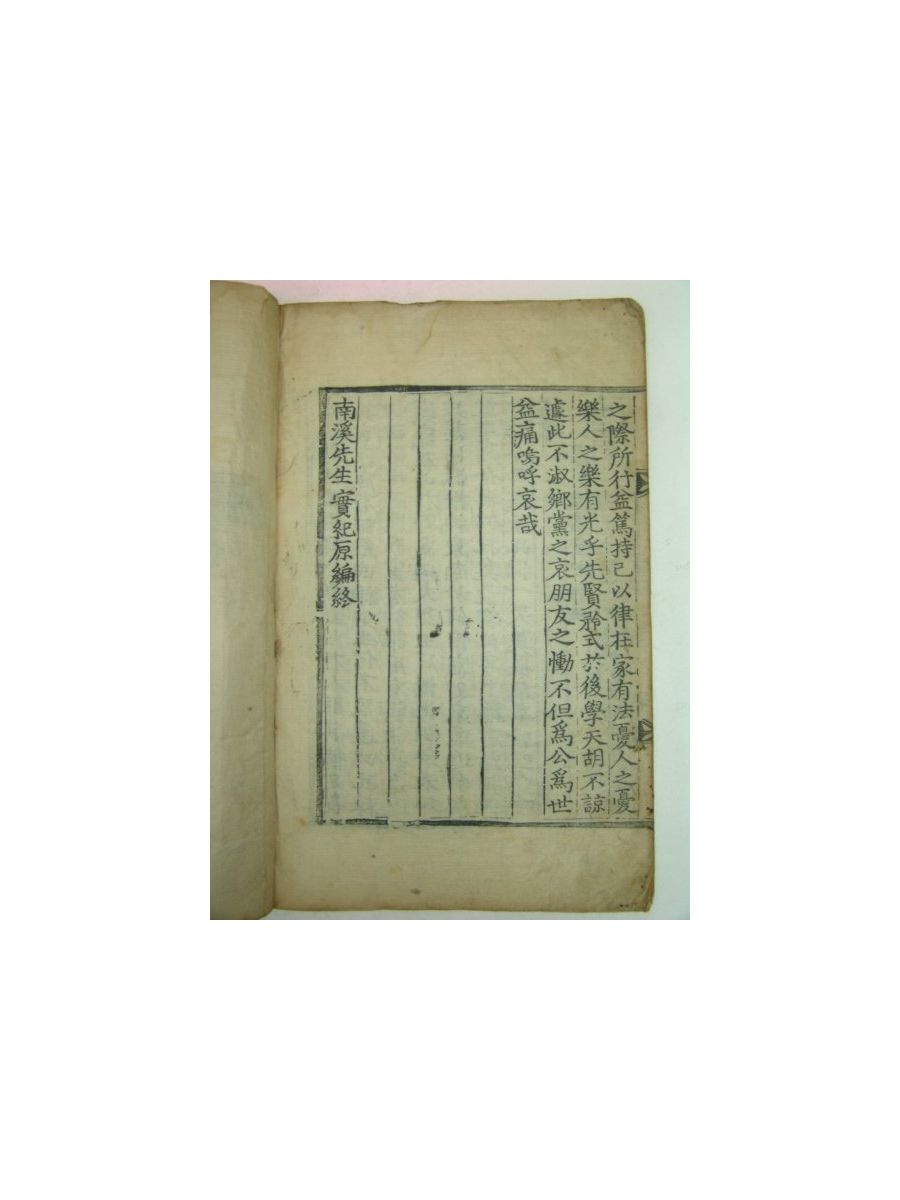 之際所行益篤持己以律在家有法憂人之憂
樂人之樂有光乎先賢矜式於後學天胡不諒
遽此不淑鄉黨之哀朋友之慟不但爲公爲世
益痛嗚呼哀哉
南溪先生實紀原編終